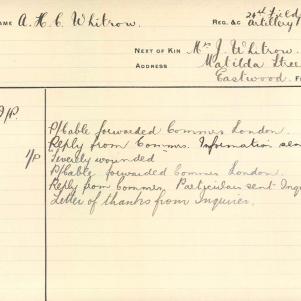 NAME A. H. C. Whitrow. REG. &c 24th Field Artillery
NEXT OF KIN Mrs J. Whitrow.
ADDRESS Matilda Stree
Eastwood.
P/Cable forwarded Commrs London.
Reply from Commrs. Information sen
"Severely wounded"
P/Cable forwarded Commrs London.
Reply from Commrs. Particulars sent Inq
Letter of thanks from Inquirer.